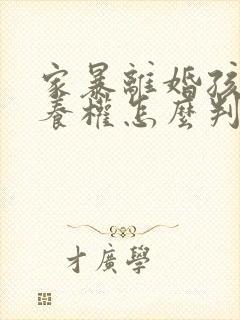 家暴離婚孩
養權怎麼判
才廣學